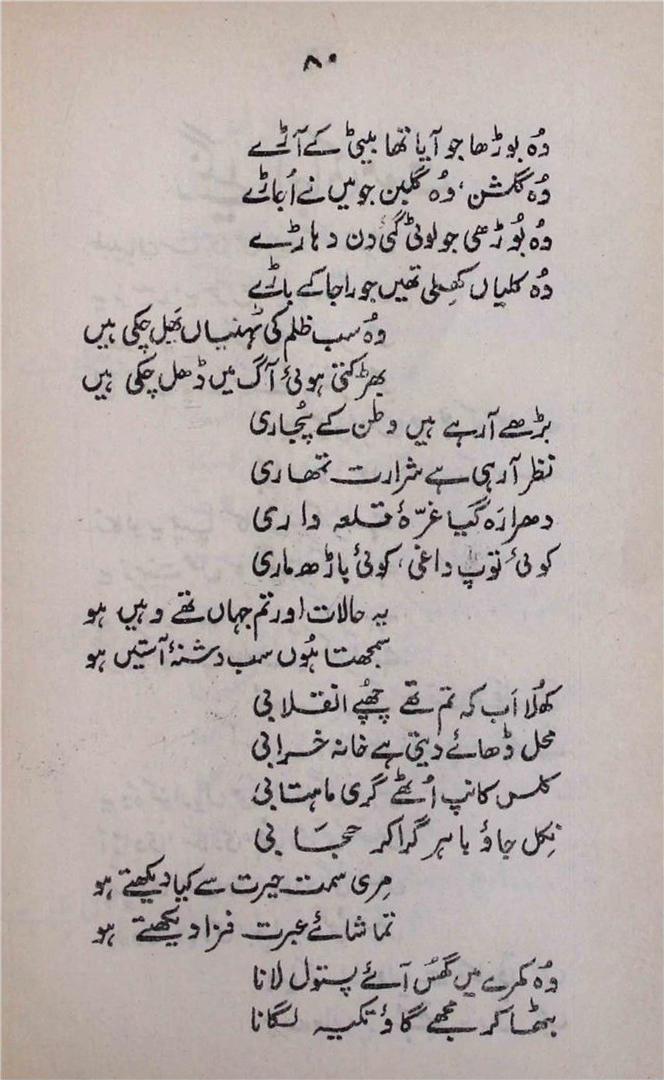 ۸۰
وُہ بوڑھا جو آیا تھا بیٹی کے آڑے
وُہ گلشن، وُہ گلبن جو میں نے اُجاڑے
وہ بُوڑھی جو لوٹی گئی دن دہاڑے
وُہ کلیاں کھِلی تھیں جو راجا کے باڑے
وُہ سب ظلم کی ٹہنیاں پھَل چکی ہیں
بھڑکتی ہوئی آگ میں ڈھل چکی ہیں
بڑھے آرہے ہیں وطن کے پُجاری
نظر آرہی ہے شرارت تمھاری
دھرا رَہ گیا غرّۂ قلعہ داری
کوئی توپ داغی، کوئی باڑھ ماری
یہ حالات اور تم جہاں تھے وہیں ہو
سمجھتا ہُوں سب دشنۂ آستیں ہو
کھُلا اَب کہ تم تھے چھُپے انقلابی
محل ڈھائے دیتی ہے خانہ خرابی
کلس کانپ اُٹھے گری ماہتابی
نِکل جاؤ باہر گرا کر حجَابی
مِری سمت حیرت سے کیا دیکھتے ہو
تماشائے عبرت فزا دیکھتے ہو
وُہ کمرے میں گھُس آئے پستول لانا
بٹھا کر مجھے گاؤ تکیہ لگانا